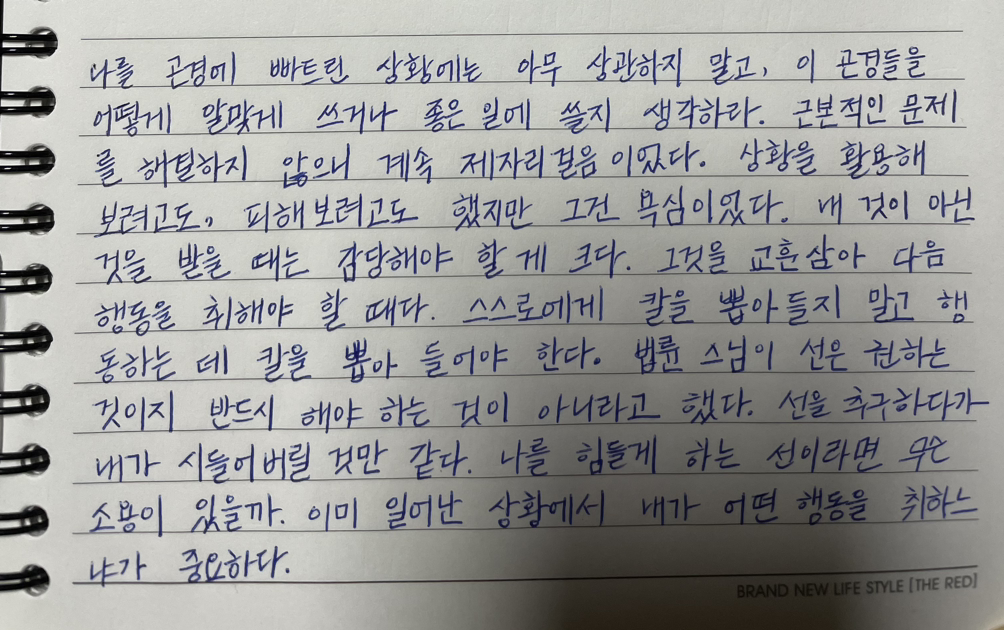 나를 곤경에 빠트린 상황에는 아무 상관하지 말고, 이 곤경들을
어떻게 알맞게 쓰거나 좋은 일에 쓸지 생각하라. 근본적인 문제
를 해털하지 않으니 계속 제자리걸음이었다. 상황을 활용해
보려고도, 피해보려고도 했지만 그건 욕심이었다. 내 것이 아닌
것을 받을 때는 감당해야 할 게 크다. 그것을 교훈삼아 다음
행동을 취해야 할 때다. 스스로에게 칼을 뽑아들지 말고 행
동하는 데 칼을 뽑아 들어야 한다. 법륜 스님이 선은 권하는
것이지 반드시 해야 하는 것이 아니라고 했다. 선을 추구하다가
내가 시들어버릴 것만 같다. 나를 힘들게 하는 선이라면 무슨
소용이 있을까. 이미 일어난 상황에서 내가 어떤 행동을 취하느
냐가 중요하다.
BRAND NEW LIFE STYLE [THE RED]